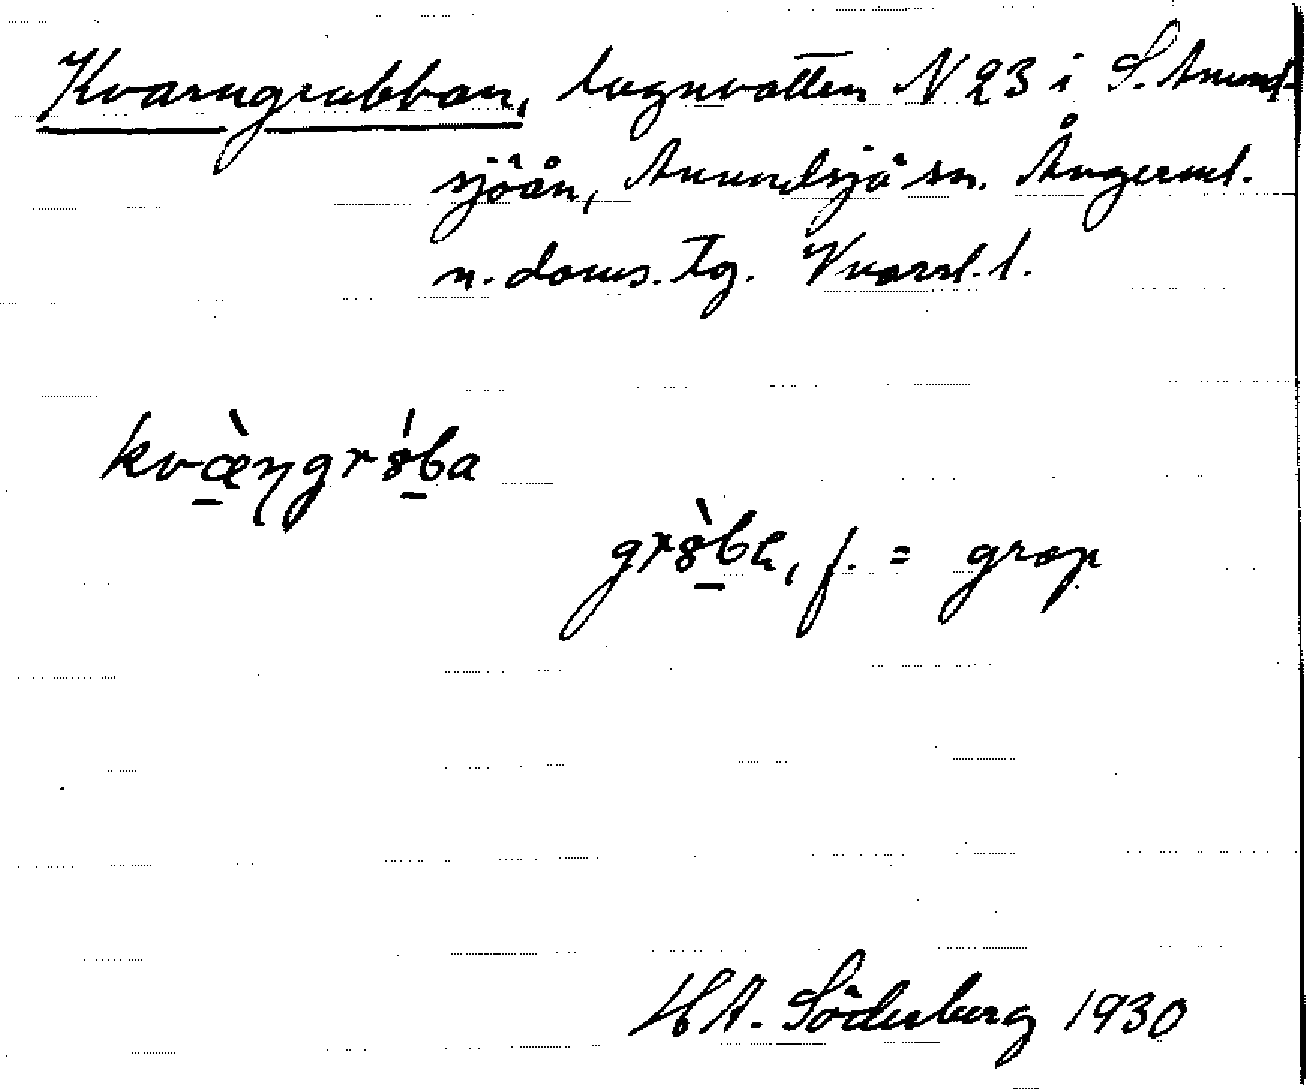 Kvarngrubban, lugnvatten N 23 i S. Anund-
sjöån, Anundsjö sn. Ångerml.
n. doms. Tg.
kvæ̀ŋgrȣ́ba
grȣ̀ba, f. = grop
H A. Söderberg 1930